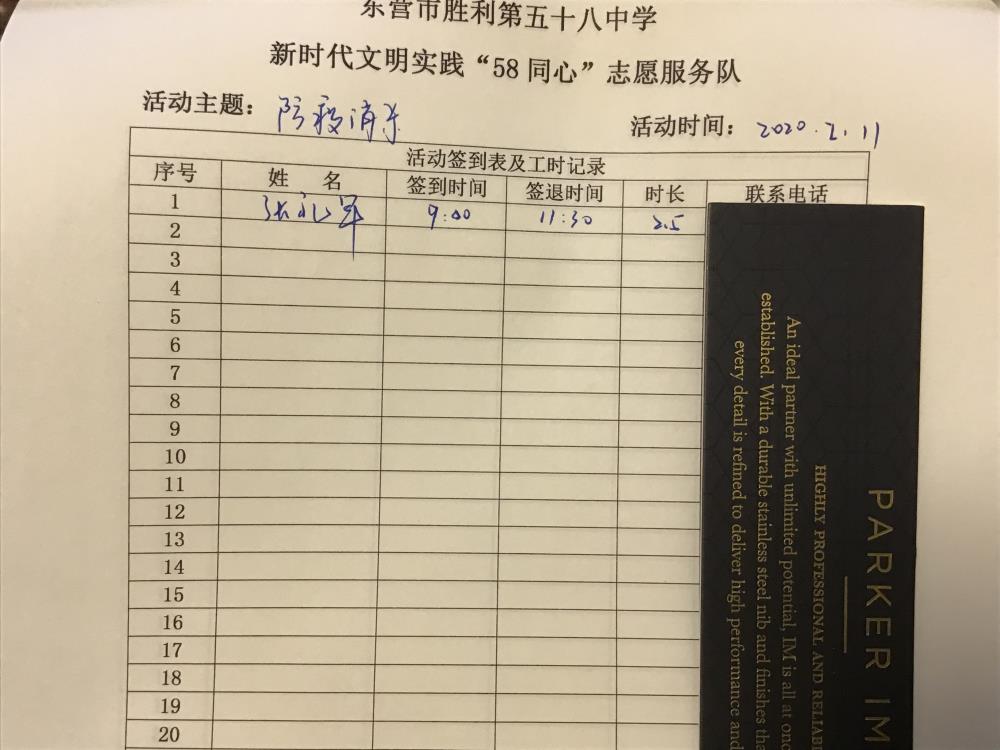 东营市胜利第五十八中学
新时代文明实践“58同心”志愿服务队
活动主题： 防疫消杀 活动时间： 2020.2.11
活动签到表及工时记录
序号 姓 名 签到时间 签退时间 时长 联系电话
1 张礼军 9:00 11:30 2.5
2
3
4
5
6
7
8
9
10
11
12
13
14
15
16
17
18
19
20
PARKER IM
HIGHLY PROFESSIONAL AND RELIAB
An ideal partner with unlimited potential, IM is all at onc
established. With a durable stainless steel nib and finishes tha
every detail is refined to deliver high performance and